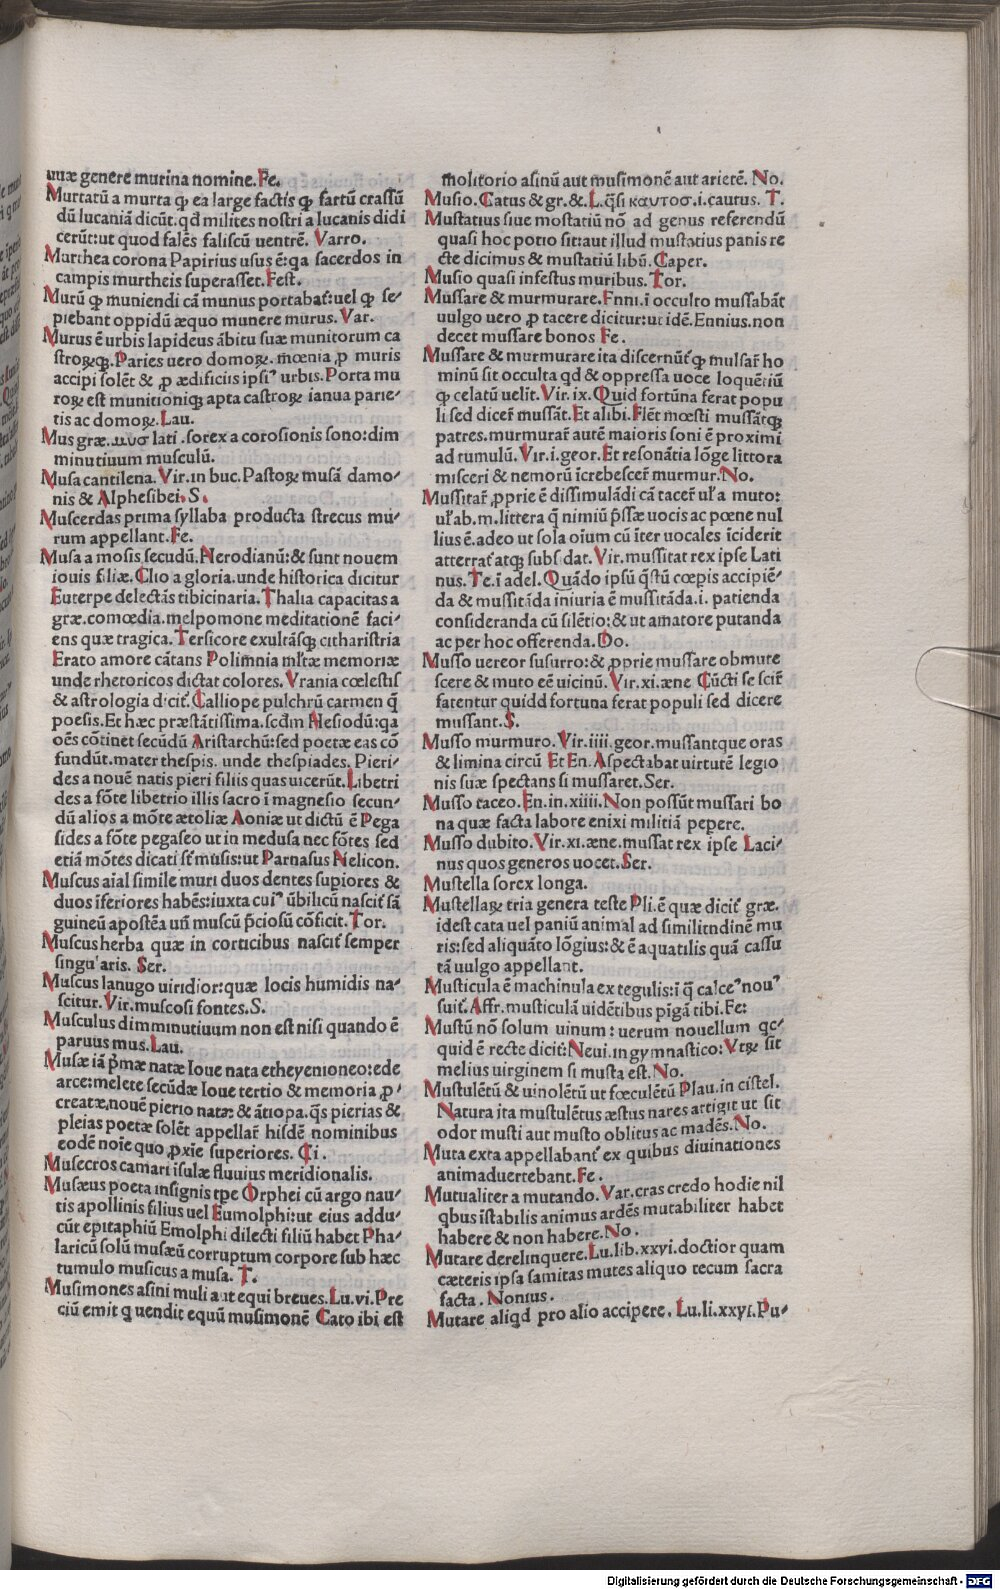 uuæ genere murina nomine.Fe.
Murtatū a murta ꝙ ea large factis ꝙ fartū crassū
dū lucaniā dicūt.qd milites nostri a lucanis didi
cerūt:ut quod falēs faliscū uentrē. Varro.
Murthea corona Papirius usus ē:qa sacerdos in
campis murtheis superasset.Fest.
Murū ꝙ muniendi cā munus portabat:uel ꝙ se⸗
piebant oppidū æquo munere murus. Var.
Murus ē urbis lapideus ābitu suæ munitorum ca
stroꝝqꝫ.Paries uero domoꝝ.mœnia ꝓ muris
accipi solēt & ꝓ ædificiis ipsiꝰ urbis.Porta mu
roꝝ est munitioniqꝫ apta castroꝝ ianua parie⸗
tis ac domoꝝ.Lau.
Mus græ.μυσ lati .sorex a corosionis sono:dim
minutiuum musculū.
Musa cantilena.Vir.in buc.Pastoꝝ musā damo⸗
nis & Alphesibei.S.
Muscerdas prima syllaba producta strecus mu⸗
rum appellant.Fe.
Musa a mosis secudū.Herodianū:& sunt nouem
iouis filiæ.Clio a gloria.unde historica dicitur
Euterpe delectās tibicinaria.Thalia capacitas a
græ.comœdia.melpomone meditationē faci⸗
ens quæ tragica.Tersicore exultāsqꝫ citharistria
Erato amore cātans Polimnia ml'tæ memoriæ
unde rhetoricos dictat colores.Vrania cœlestis
& astrologia dicit̃.Calliope pulchrū carmen q̄
poesis.Et hæc præstātissima.scdm Hesiodū:qa
oēs cōtinet secūdū Aristarchū:sed poetæ eas cō
fundūt.mater thespis. unde thespiades. Pieri⸗
des a nouē natis pieri filiis quas uicerūt.Libetri
des a fōte libetrio illis sacro ī magnesio secun⸗
dū alios a mōte ætoliæ Aoniæ ut dictū ē Pega
sides a fōte pegaseo ut in medusa nec fōtes sed
etiā mōtes dicati st̃ musis:ut Parnasus Helicon.
Muscus aial simile muri duos dentes supiores &
duos iferiores habēs:iuxta cuiꝰ ūbilicū nascit̃ sā
guineū apostēa uñ muscū p̄ciosū cōficit.Tor.
Muscus herba quæ in corticibus nascit̃ semper
singularis. Ser.
Muscus lanugo uiridior:quæ locis humidis na⸗
scitur.Vir.muscosi fontes.S.
Musculus dimminutiuum non est nisi quando ē
paruus mus.Lau.
Musæ iā p̄mæ natæ Ioue nata etheyenioneo:ede
arce:melete secūdæ Ioue tertio & memoria ꝓ⸗
creatæ.nouē pierio natæ & ātiopa.q̄s pierias &
pleias poetæ solēt appellar̃ hisdē nominibus
eodē noīe quo ꝓxīe superiores. Ci.
Musecros camari isulæ fluuius meridionalis.
Musæus poeta insignis tpe Orphei cū argo nau⸗
tis apollinis filius uel Eumolphi:ut eius addu⸗
cūt epitaphiū Emolphi dilecti filiū habet Pha⸗
laricū solū musæū corruptum corpore sub hæc
tumulo musicus a musa. T.
Musimones asini muli aut equi breues.Lu.vi.Pre
ciū emit q uendit equū musimonē Cato ibi est
molitorio asinū aut musimonē aut arietē. No.
Musio. Catus & gr.&.L.q̄si καυτοσ.i.cautus. T.
Mustatius siue mostatiū nō ad genus referendū
quasi hoc potio sit:aut illud mustatius panis re
cte dicimus & mustatiū libū.Caper.
Musio quasi infestus muribus.Tor.
Mussare & murmurare.Enni.ī occulto mussabāt
uulgo uero ꝓ tacere dicitur:ut idē.Ennius.non
decet mussare bonos Fe.
Mussare & murmurare ita discernūt̃ ꝙ mulsar̃ ho
minū sit occulta qd & oppressa uoce loquētiū
ꝙ celatū uelit.Vir.ix.Quid fortūna ferat popu
li sed dicer̃ mussāt.Et alibi.Flēt mœsti mussātqꝫ
patres.murmurar̃ autē maioris soni ē proximi
ad tumulū.Vir.i.geor.Et resonātia lōge littora
misceri & nemorū īcrebescer̃ murmur.No.
Mussitar̃ ꝓprie ē dissimulādi cā tacer̃ ul'a muto:
ul'ab.m.littera q̄ nimiū p̄ssæ uocis ac pœne nul
lius ē.adeo ut sola oium cū iter uocales īciderit
atterrat̃ atqꝫ subsidat.Vir.mussitat rex ipse Lati
nus.Te.ī adel.Quādo ipsū q̄stū cœpis accipiē⸗
da & mussitāda iniuria ē mussitāda.i. patienda
consideranda cū silētio:& ut amatore putanda
ac per hoc offerenda.Do.
Musso uereor susurro:& ꝓprie mussare obmute
scere & muto eē uicinū.Vir.xi.æne Cūcti se scir̃
fatentur quidd fortuna ferat populi sed dicere
mussant.S.
Musso murmuro.Vir.iiii.geor.mussantque oras
& limina circū Et En.Aspectabat uirtutē legio
nis suæ spectans si mussaret.Ser.
Musso taceo.En.in.xiiii.Non possūt mussari bo
na quæ facta labore enixi militiā pepere.
Musso dubito.Vir.xi.æne.mussat rex ipse Laci⸗
nus quos generos uocet.Ser.
Mustella sorex longa.
Mustellaꝝ tria genera teste Pli.ē quæ dicit̃ græ.
idest cata uel paniū animal ad similitudinē mu
ris:sed aliquāto lōgius:& ē aquatilis quā cassu
tā uulgo appellant.
Musticula ē machinula ex tegulis:ī q̄ calceꝰ nouꝰ
suit̃.Affr.musticulā uidētibus pigā tibi.Fe:
Mustū nō solum uinum:uerum nouellum qc⸗
quid ē recte dicit̃:Neui.in gymnastico:Vtꝝ sit
melius uirginem si musta est.No.
Mustulētū & uinolētū ut fœculētū Plau.in cistel.
Natura ita mustulētus æstus nares attigit ut sit
odor musti aut musto oblitus ac madēs.No.
Muta exta appellabant̃ ex quibus diuinationes
animaduertebant.Fe.
Mutualiter a mutando.Var.cras credo hodie nil
qbus īstabilis animus ardēs mutabiliter habet
habere & non habere.No.
Mutare derelinquere.Lu.lib.xxvi.doctior quam
cæteris ipsa samitas mutes aliquo tecum sacra
facta . Nonius.
Mutare aliqd pro alio accipere. Lu.li.xxyi.Pu⸗
Digitalisierung gefördert durch die Deutsche Forschungsgemeinschaft - DFG